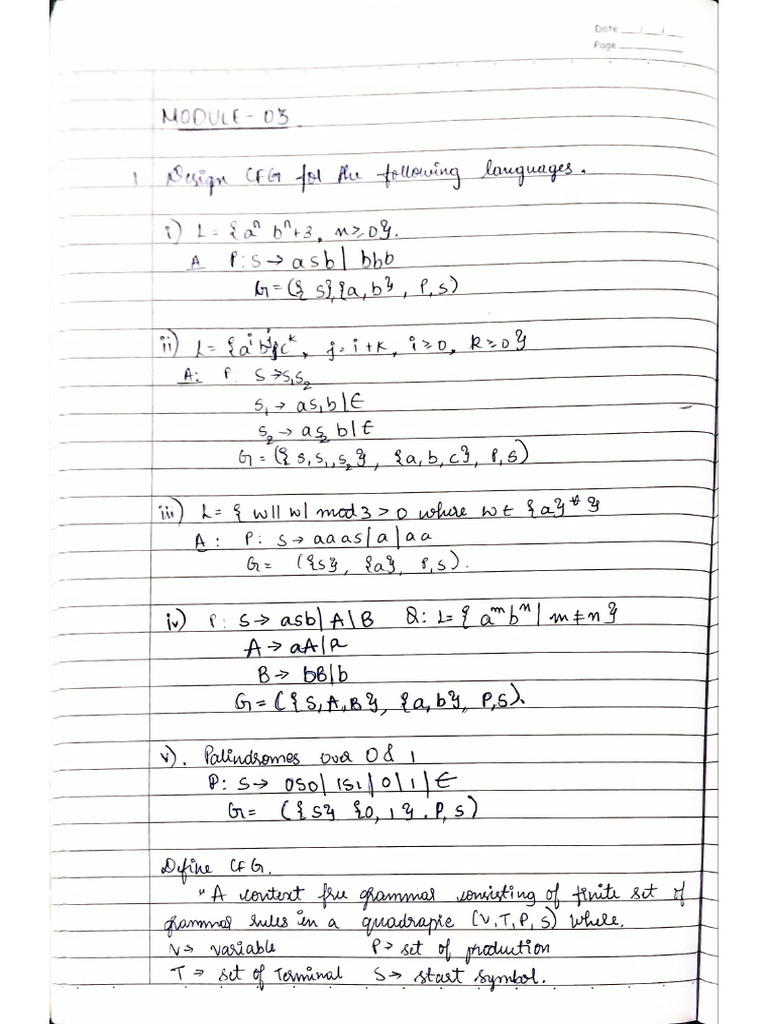 Date __/__/__
Page
MODULE - 03
1 Design CFG for the following languages.
i) L = {aⁿ bⁿ+3, n≥0}.
A P: S → asb | bbb
G = ({S},{a,b}, P,S)
ii) L = {aⁱ bʲ cᵏ, j = i+k, i≥0, k≥0}
A: P. S → S₁S₂
S₁ → aS₁b | ∈
S₂ → aS₂b | ∈
G = ({S,S₁,S₂}, {a,b,c}, P,S)
iii) L = { w | |w| mod 3 > 0 where w ∈ {a}* }
A: P: S → aaas | a | aa
G = ({S}, {a}, P,S).
iv) P: S → asb | A | B Q: L = { aᵐbⁿ | m≠n }
A → aA | a
B → bB | b
G = ({S,A,B}, {a,b}, P,S).
v). Palindromes over 0 & 1
P: S → 0S0 | 1S1 | 0 | 1 | ∈
G = ({S} {0,1}. P,S)
Define CFG.
"A context free grammar consisting of finite set of
grammar rules in a quadraple (V,T,P,S) where,
V → variable P → set of production
T → set of Terminal S → start symbol.